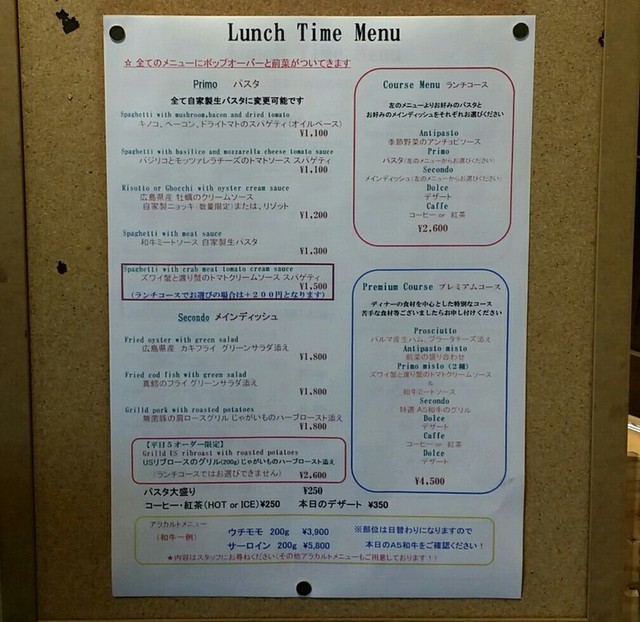 Lunch Time Menu
☆ 全てのメニューにポップオーバーと前菜がついてきます
Primo パスタ
全て自家製生パスタに変更可能です
Spaghetti with mushroom,bacon and dried tomato
キノコ、ベーコン、ドライトマトのスパゲティ(オイルベース)
¥1,100
Spaghetti with basilico and mozzarella cheese tomato sauce
バジリコとモッツァレラチーズのトマトソース スパゲティ
¥1,100
Risotto or Ghocchi with oyster cream sauce
広島県産 牡蠣のクリームソース
自家製ニョッキ(数量限定)または、リゾット
¥1,200
Spaghetti with meat sauce
和牛ミートソース 自家製生パスタ
¥1,300
Spaghetti with crab meat tomato cream sauce
ズワイ蟹と渡り蟹のトマトクリームソース スパゲティ
¥1,500
(ランチコースでお選びの場合は+200円となります)
Secondo メインディッシュ
Fried oyster with green salad
広島県産 カキフライ グリーンサラダ添え
¥1,800
Fried cod fish with green salad
真鱈のフライ グリーンサラダ添え
¥1,800
Grilld pork with roasted potatoes
無菌豚の肩ロースグリル じゃがいものハーブロースト添え
¥1,800
【平日5オーダー限定】
Grilld US ribroast with roasted potatoes
USリブロースのグリル(200g)じゃがいものハーブロースト添え
(ランチコースではお選びできません) ¥2,600
パスタ大盛り ¥250
コーヒー・紅茶(HOT or ICE)¥250 本日のデザート ¥350
Course Menu ランチコース
左のメニューよりお好みのパスタと
お好みのメインディッシュをそれぞれお選びください
Antipasto
季節野菜のアンチョビソース
Primo
パスタ(左のメニューからお選びください)
Secondo
メインディッシュ(左のメニューからお選びください)
Dolce
デザート
Caffe
コーヒー or 紅茶
¥2,600
Premium Course プレミアムコース
ディナーの食材を中心とした特別なコース
苦手な食材等ございましたらお申し付けください
Prosciutto
パルマ産生ハム、ブラータチーズ添え
Antipasto misto
前菜の盛り合わせ
Primo misto (2種)
ズワイ蟹と渡り蟹のトマトクリームソース
&
和牛ミートソース
Secondo
特選 A5和牛のグリル
Dolce
デザート
Caffe
コーヒー or 紅茶
Dolce
デザート
¥4,500
アラカルトメニュー
(和牛一例)
ウチモモ 200g ¥3,900
サーロイン 200g ¥5,800
※部位は日替わりになりますので
本日のA5和牛をご確認ください!
★内容はスタッフにお尋ねください(その他アラカルトメニューもご用意しております!)